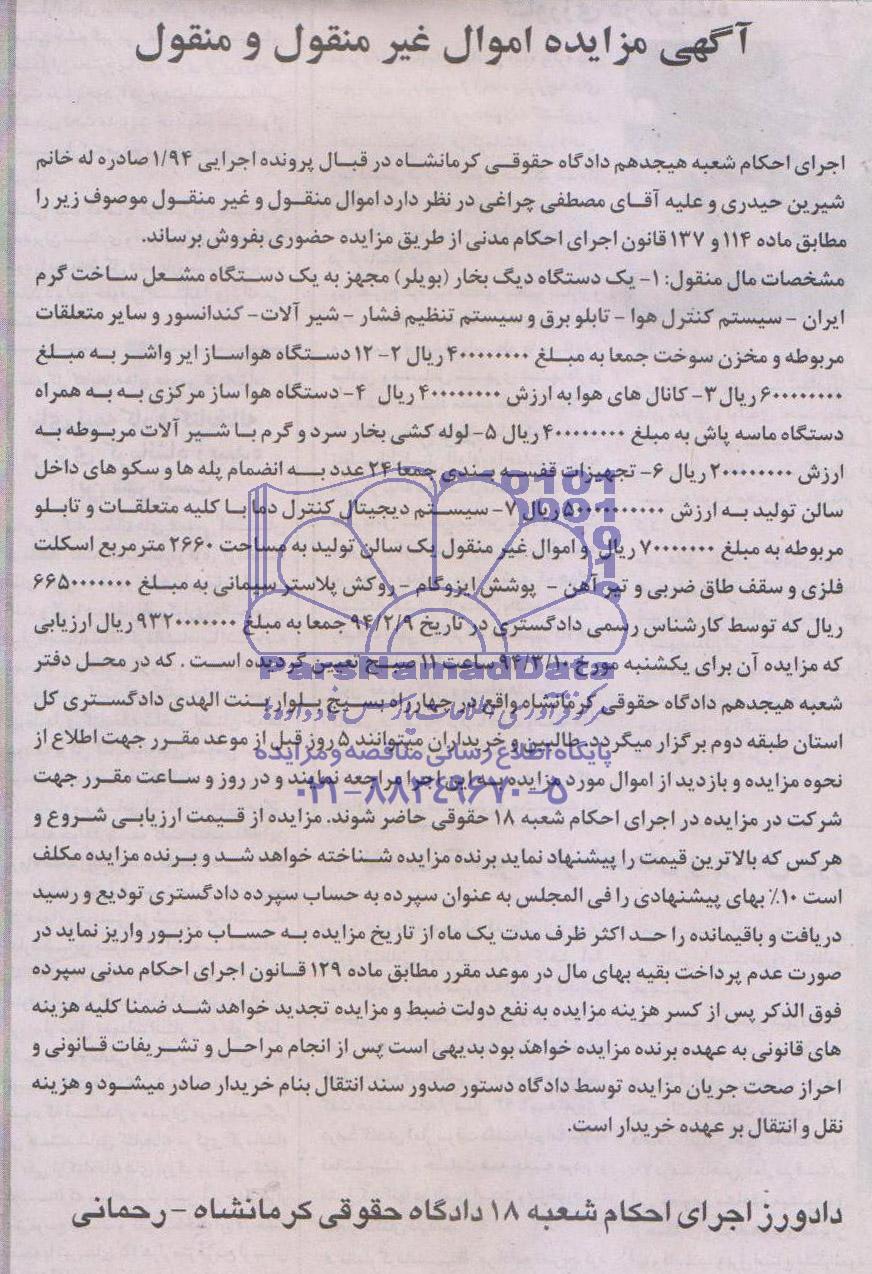 آگهی مزایده اموال غیر منقول و منقول
اجرای احکام شعبه هیجدهم دادگاه حقوقی کرمانشاه در قبال پرونده اجرایی ۱/۹۴ صادره له خانم
شیرین حیدری و علیه آقای مصطفی چراغی در نظر دارد اموال منقول و غیر منقول موصوف زیر را
مطابق ماده ۱۱۴ و ۱۳۷ قانون اجرای احکام مدنی از طریق مزایده حضوری بفروش برساند.
مشخصات مال منقول: ۱- یک دستگاه دیگ بخار (بویلر) مجهز به یک دستگاه مشعل ساخت گرم
ایران - سیستم کنترل هوا - تابلو برق و سیستم تنظیم فشار - شیر آلات - کندانسور و سایر متعلقات
مربوطه و مخزن سوخت جمعا به مبلغ ۴۰۰۰۰۰۰۰۰ ریال ۲- ۱۲ دستگاه هواساز ایر واشر به مبلغ
۶۰۰۰۰۰۰۰۰ ریال ۳- کانال های هوا به ارزش ۴۰۰۰۰۰۰۰۰ ریال ۴- دستگاه هوا ساز مرکزی به به همراه
دستگاه ماسه پاش به مبلغ ۴۰۰۰۰۰۰۰۰ ریال ۵- لوله کشی بخار سرد و گرم با شیر آلات مربوطه به
ارزش ۲۰۰۰۰۰۰۰۰ ریال ۶- تجهیزات قفسه بندی جمعا ۲۴ عدد به انضمام پله ها و سکو های داخل
سالن تولید به ارزش ۵۰۰۰۰۰۰۰۰۰ ریال ۷- سیستم دیجیتال کنترل دما با کلیه متعلقات و تابلو
مربوطه به مبلغ ۷۰۰۰۰۰۰۰ ریال و اموال غیر منقول یک سالن تولید به مساحت ۲۶۶۰ متر مربع اسکلت
فلزی و سقف طاق ضربی و تیر آهن - پوشش ایزوگام - روکش پلاستر سیمانی به مبلغ ۶۶۵۰۰۰۰۰۰۰
ریال که توسط کارشناس رسمی دادگستری در تاریخ ۹۴/۲/۹ جمعا به مبلغ ۹۳۲۰۰۰۰۰۰۰ ریال ارزیابی
که مزایده آن برای یکشنبه مورخ ۹۴/۳/۱۰ ساعت ۱۱ صبح تعیین گردیده است . که در محل دفتر
شعبه هیجدهم دادگاه حقوقی کرمانشاه واقع در چهارراه بسیج بلوار بنت الهدی دادگستری کل
استان طبقه دوم برگزار میگردد. طالبین و خریداران میتوانند ۵ روز قبل از موعد مقرر جهت اطلاع از
نحوه مزایده و بازدید از اموال مورد مزایده به این اجرا مراجعه نمایند و در روز و ساعت مقرر جهت
شرکت در مزایده در اجرای احکام شعبه ۱۸ حقوقی حاضر شوند. مزایده از قیمت ارزیابی شروع و
هر کس که بالاترین قیمت را پیشنهاد نماید برنده مزایده شناخته خواهد شد و برنده مزایده مکلف
است ۱۰٪ بهای پیشنهادی را فی المجلس به عنوان سپرده به حساب سپرده دادگستری تودیع و رسید
دریافت و باقیمانده را حد اکثر ظرف مدت یک ماه از تاریخ مزایده به حساب مزبور واریز نماید در
صورت عدم پرداخت بقیه بهای مال در موعد مقرر مطابق ماده ۱۲۹ قانون اجرای احکام مدنی سپرده
فوق الذکر پس از کسر هزینه مزایده به نفع دولت ضبط و مزایده تجدید خواهد شد ضمنا کلیه هزینه
های قانونی به عهده برنده مزایده خواهد بود بدیهی است پس از انجام مراحل و تشریفات قانونی و
احراز صحت جریان مزایده توسط دادگاه دستور صدور سند انتقال بنام خریدار صادر میشود و هزینه
نقل و انتقال بر عهده خریدار است.
دادورز اجرای احکام شعبه ۱۸ دادگاه حقوقی کرمانشاه - رحمانی
ParsNamadData
مرکز فرآوری اطلاعات پارس نماد داده ها
پایگاه اطلاع رسانی مناقصه و مزایده
۰۲۱-۸۸۳۴۹۶۷۰-۵